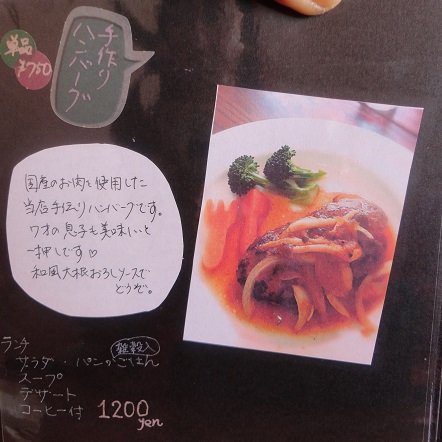 手作り
ハンバーグ
単品
¥750
国産のお肉を使用した
当店手作りハンバーグです。
7才の息子も美味しいと
一押しです♡
和風大根おろしソースで
どうぞ。
ランチ
雑穀入
サラダ・パンかごはん
スープ
デザート
コーヒー付 1200yen